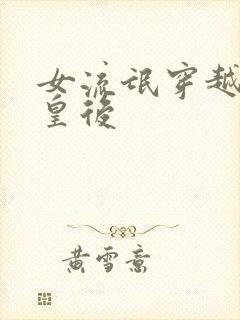 女流氓穿越
皇後
黄雪意